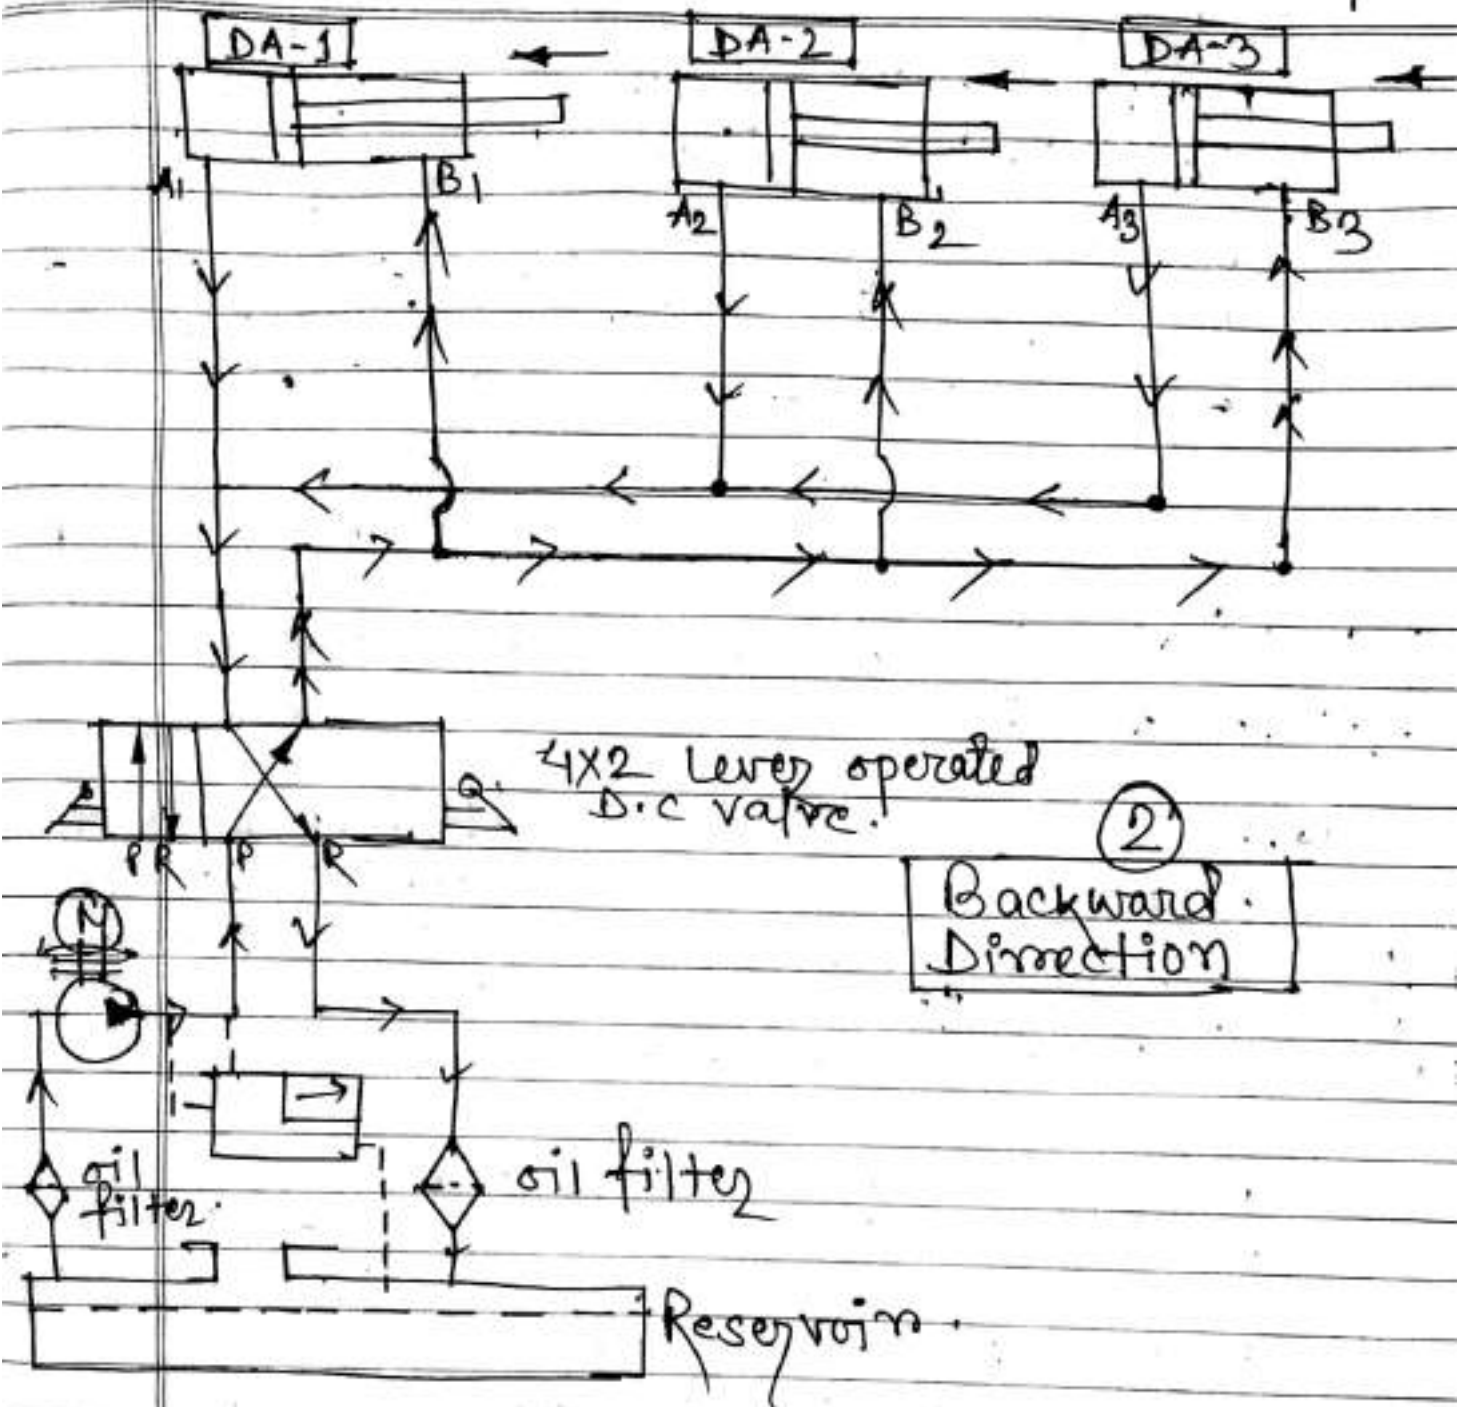 DA-1
DA-2
DA-3
A1
B1
A2
B2
A3
B3
4X2 Lever operated
D.C valve.
P R P R
2
Backward
Dirrection
M
oil
filter
oil filter
Reservoir.